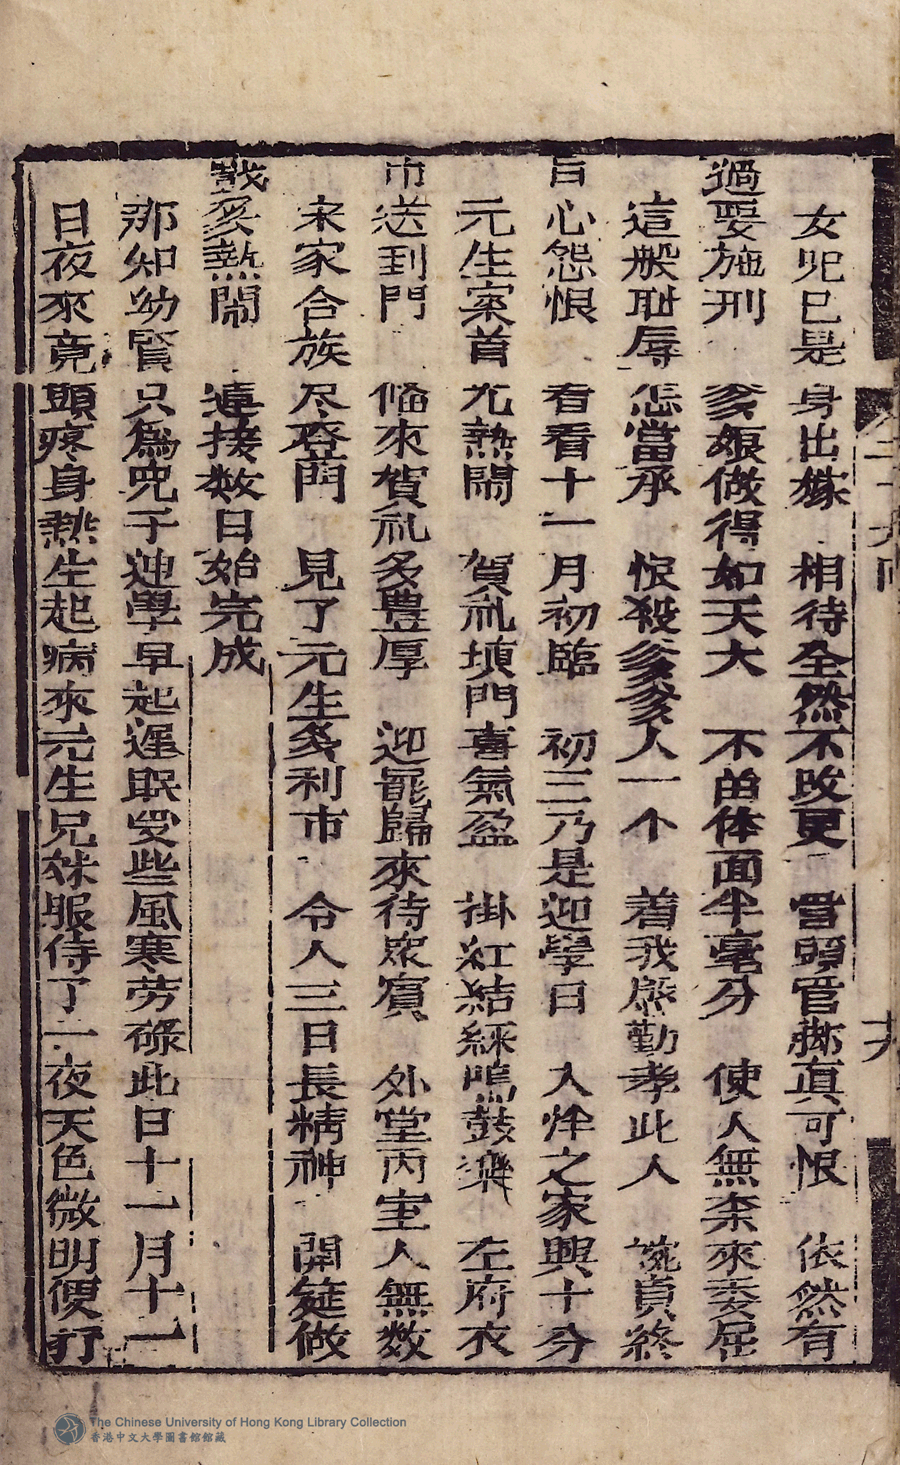 女児已是　身出嫁　相待全然不改更　當頭官擲真可恨　依然有
過要施刑　爹娘做得如天大　不的体面半毫分　使人無奈來委屈
這般耻辱　怎當承　恨殺爹爹人一个　着我慇勤孝此人　抱負終
日心怨恨　看看十一月初臨　初三乃是迎學日　入泮之家興十分
元生案首　尤熱鬧　賀礼填門喜氣盈　掛紅結綵鳴鼓樂　左府衣
巾送到門　俻來賀礼多豊厚　迎罷歸來待衆賓　外堂丙室人無数
宋家合族　尽登門　見了元生多利市　令人三日長精神　開筵做
戱多熱鬧　連接数日始完成
那知幼賢　只為児子迎學早起遲眠受些風寒劳碌此日十一月十一
日夜來竟　頭疼身熱生起病來元生兄妹服侍了一夜天色微明便打
十九
The Chinese University of Hong Kong Library Collection
香港中文大學圖書館館藏